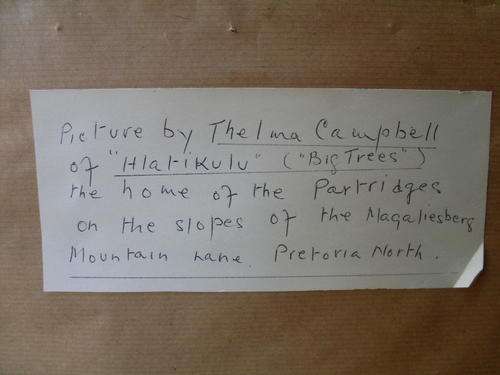 Picture by Thelma Campbell
of "Hlatikulu" ("Big Trees")
the home of the Partridges
on the slopes of the Magaliesberg
Mountain Lane. Pretoria North.